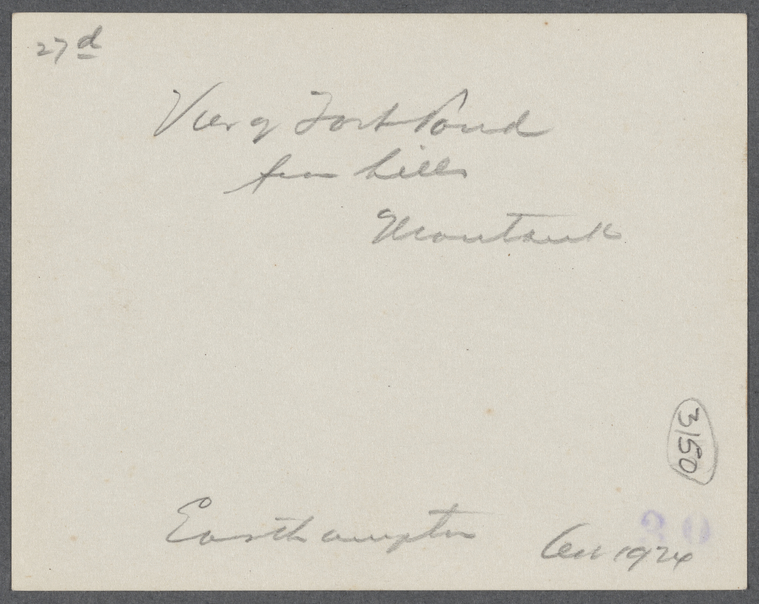 27d
View of Fort Pond
from hills
Montauk
3150
Easthampton
Oct 1924